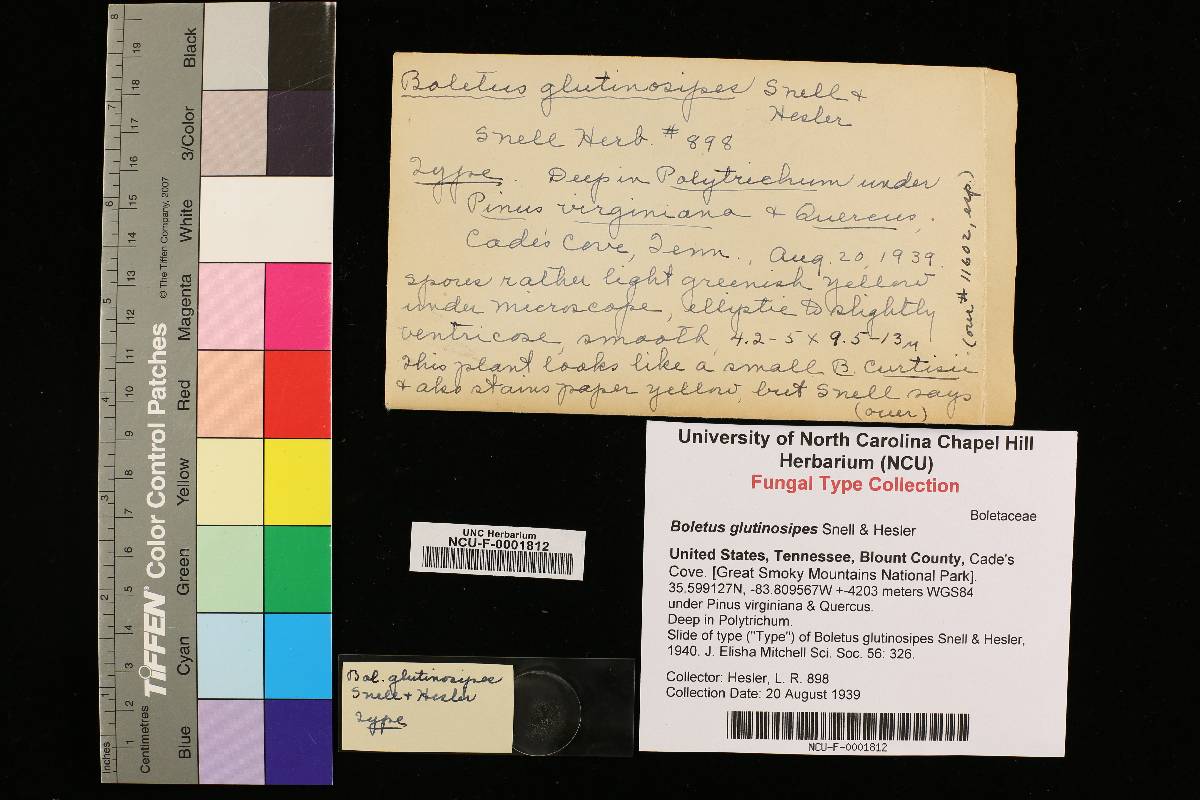 Boletus glutinosipes Snell &
Hesler
Snell Herb. # 898
Type. Deep in Polytrichum under
Pinus virginiana & Quercus,
Cade's Cove, Tenn., Aug. 20, 1939.
spores rather light greenish yellow
under microscope, elliptic to slightly
ventricose, smooth, 4.2-5 x 9.5-13µ
This plant looks like a small B. Curtisii
& also stains paper yellow, but Snell says
(over)
(our # 11602, esp.)
University of North Carolina Chapel Hill
Herbarium (NCU)
Fungal Type Collection
Boletaceae
Boletus glutinosipes Snell & Hesler
United States, Tennessee, Blount County, Cade's
Cove. [Great Smoky Mountains National Park].
35.599127N, -83.809567W +-4203 meters WGS84
under Pinus virginiana & Quercus.
Deep in Polytrichum.
Slide of type ("Type") of Boletus glutinosipes Snell & Hesler,
1940. J. Elisha Mitchell Sci. Soc. 56: 326.
Collector: Hesler, L. R. 898
Collection Date: 20 August 1939
NCU-F-0001812
UNC Herbarium
NCU-F-0001812
Bol. glutinosipes
Snell & Hesler
Type
TIFFEN® Color Control Patches
© The Tiffen Company, 2007
Black
3/Color
White
Magenta
Red
Yellow
Green
Cyan
Blue
Inches
1 2 3 4 5 6 7 8
Centimetres
1 2 3 4 5 6 7 8 9 10 11 12 13 14 15 16 17 18 19